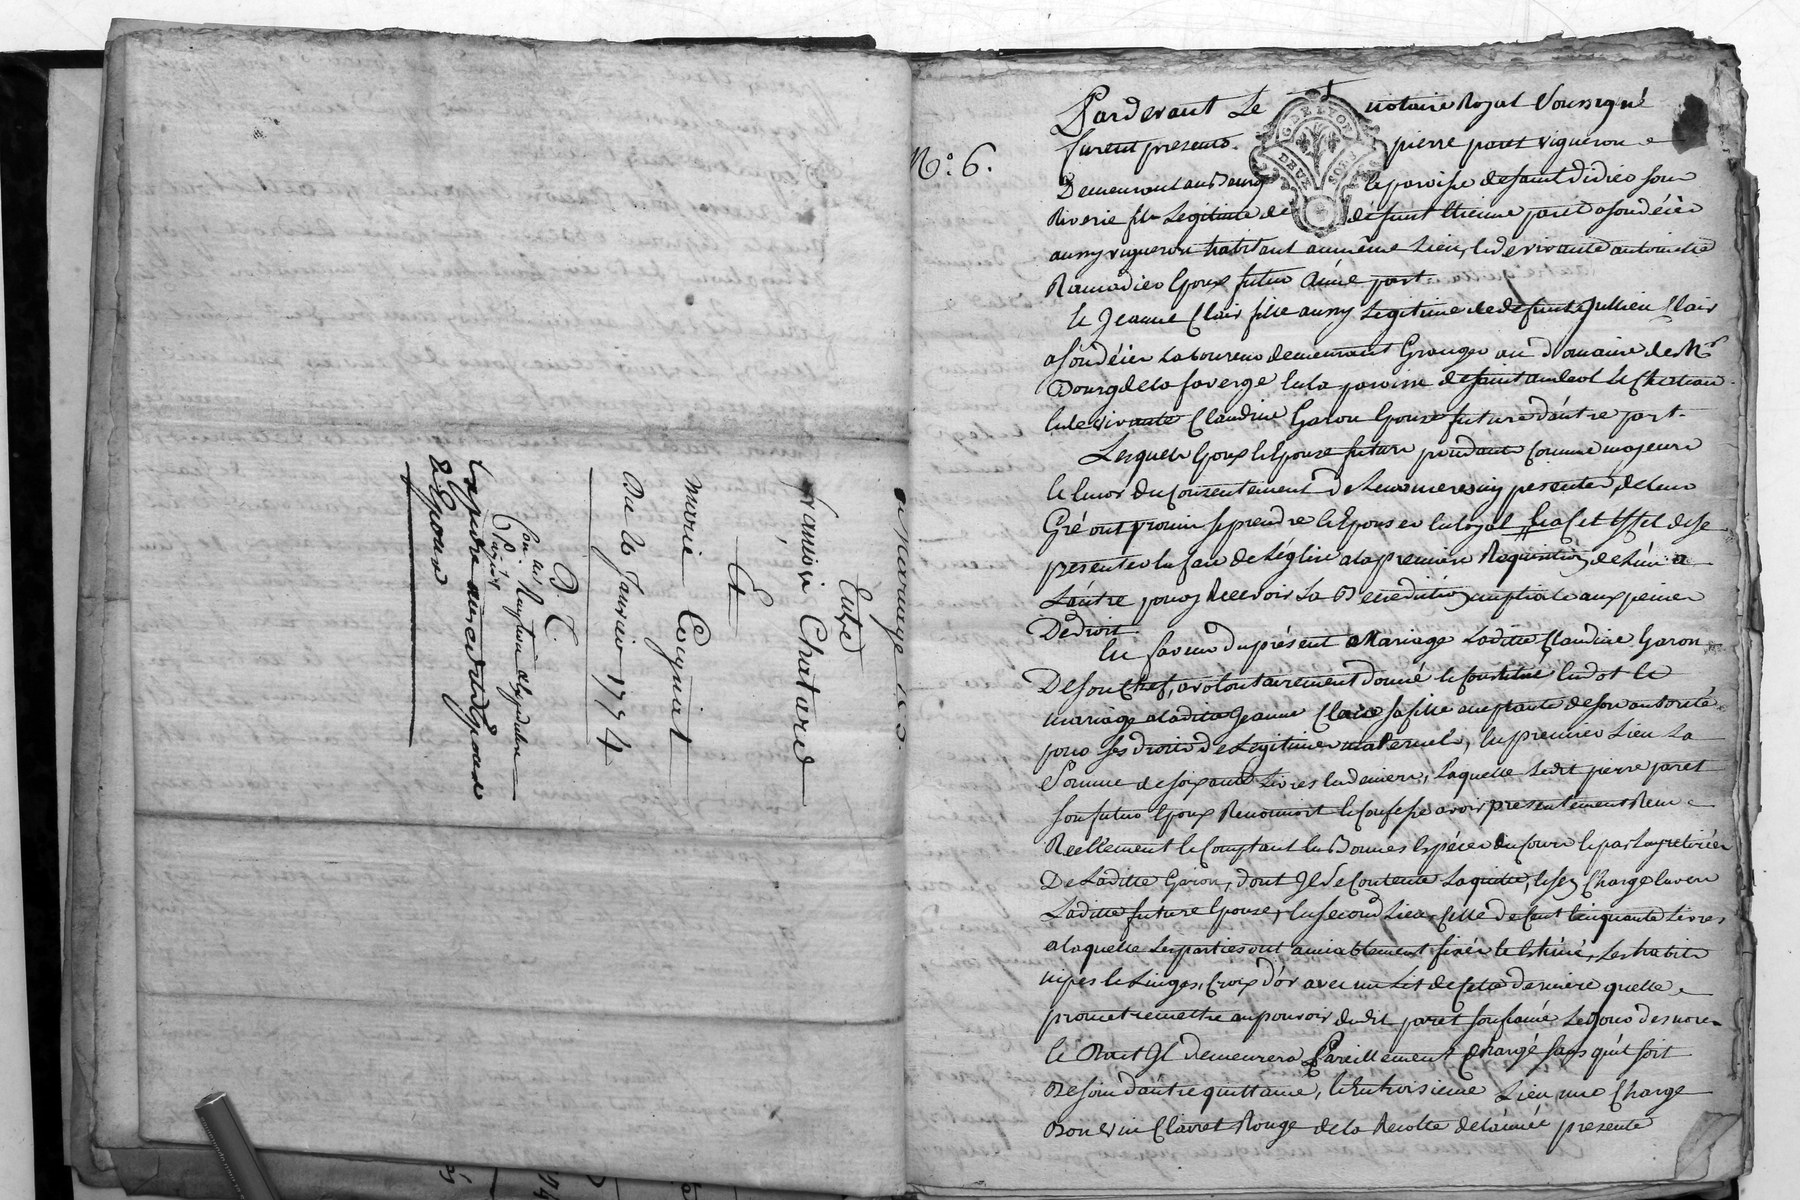 mariage
Entre
francois Chatard
Et
marie Coignat
Du 16 Janvier 1774
D. C.
Con.lé Insinué Expedié
Papier
Expedié aux deux Epoux
& Epouse
N.o 6.
G. DE LYON
DEUX SOLS
Pardevant Le notaire Royal Soussigné
furent presents. pierre paret vigneron
Demeurant au Bourg & paroisse de saint didier sous
Riverie fils Legitime de défunt Etienne paret a son décès
aussy vigneron habitant au même Lieu, & de vivante antoinette
Ramadier Epoux futur d'une part.
Et Jeanne Clair fille aussy Legitime de defunt Jullien Clair
a son décès Laboureur demeurant Granger au Domaine de Mr
Dourg de la faverge en la paroisse de saint andeol le Chateau
& de vivante Claudine Garon Epouse future d'autre part.
Lesquels Epoux & Epouse futurs procedants comme majeurs
& encor du consentement de Leurs meres icy presentes, de leur
Gré ont promis se prendre & Epouser en loyal & a cet effet de se
presenter en face de L'église a la premiere Requisition de L'un a
L'autre pour y Recevoir La Benediction nuptiale aux peines
De droit.
En faveur du présent Mariage Laditte Claudine Garon
De son Chef, a volontairement donné & Constitué en dot &
mariage a ladite Jeanne Clair sa fille acceptante de son autorité
pour ses droits de Legitime maternels, en premier Lieu La
Somme de soixante Livres en deniers, Laquelle Ledit pierre paret
son futur Epoux Reconnoit & Confesse avoir presentement Reçue
Reellement & Comptant en Bonnes Espéces du Cours & par Luy retirées
De Laditte Garon, dont Il se Contente La quitte, & s'en Charge envers
Laditte future Epouse, en second Lieu, celle de cent cinquante Livres
a laquelle Les parties ont amiablement fixé & Estimé, Les habits
nipes & Linges, Croix d'or avec un Lit de Cette derniere quelle
promet remettre au pouvoir dudit paret son fiancé Le jour des noces
& dont Il demeurera Pareillement chargé sans qu'il soit
Besoin d'autre quittance, & En troisieme Lieu une Charge
Bon Vin Clairet Rouge de la Recolte de l'année presente